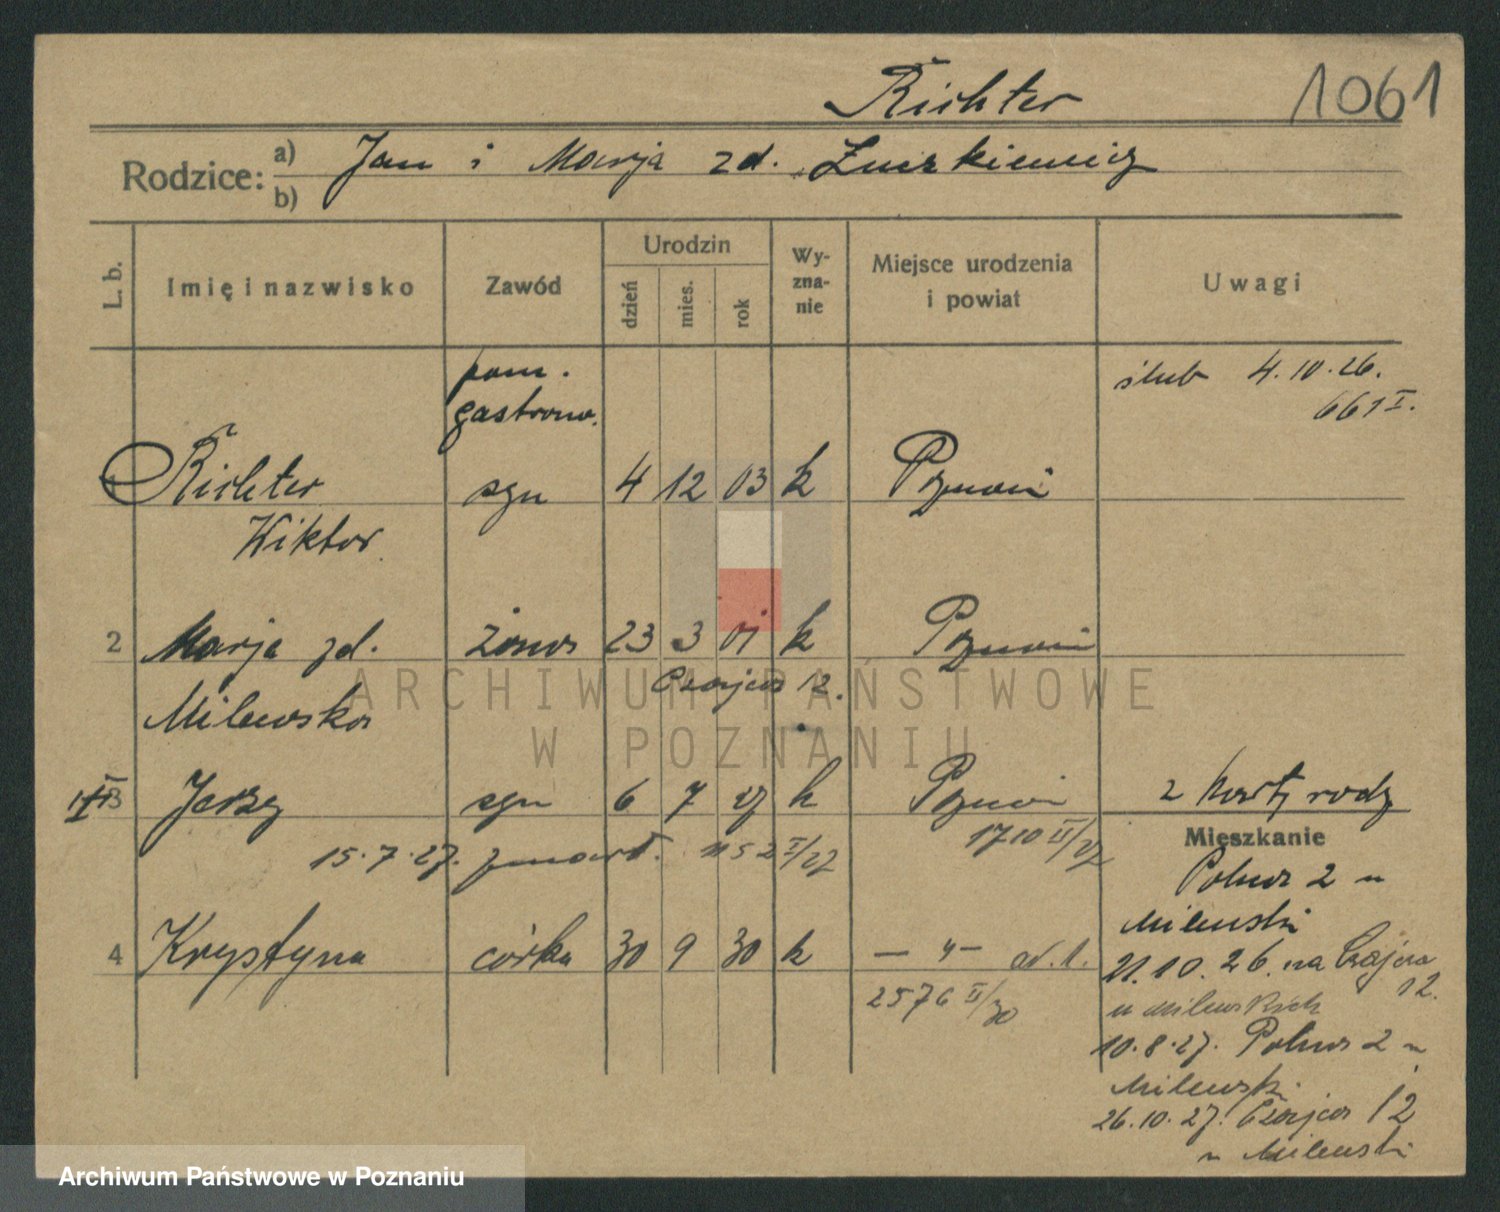 Richter 1061
Rodzice: a) Jan i Marja zd.
b)
L. b. Imię i nazwisko Zawód Urodzin dzień mies. rok Wy-zna-nie Miejsce urodzenia i powiat Uwagi
pom. ślub 4.10.26.
gastronom. 661 I.
1 Richter syn 4 12 03 k Poznań
Wiktor
2 Marja zd. żona 23 3 k Poznań
Milewska Czajcza 12.
3 Jerzy syn 6 7 27 k Poznań 2 karty rodz
15.7.27. zmarł. 1152 I/27 1710 II/27
Mieszkanie
Polna 2 u
Milewski
4 Krystyna córka 30 9 30 k — " —
21.10.26. na Czajcza 12.
2576 II/30
u Milewskich
10.8.27. Polna 2 u
Milewski.
26.10.27. Czajcza 12
u Milewski
ARCHIWUM PAŃSTWOWE
W POZNANIU
Archiwum Państwowe w Poznaniu